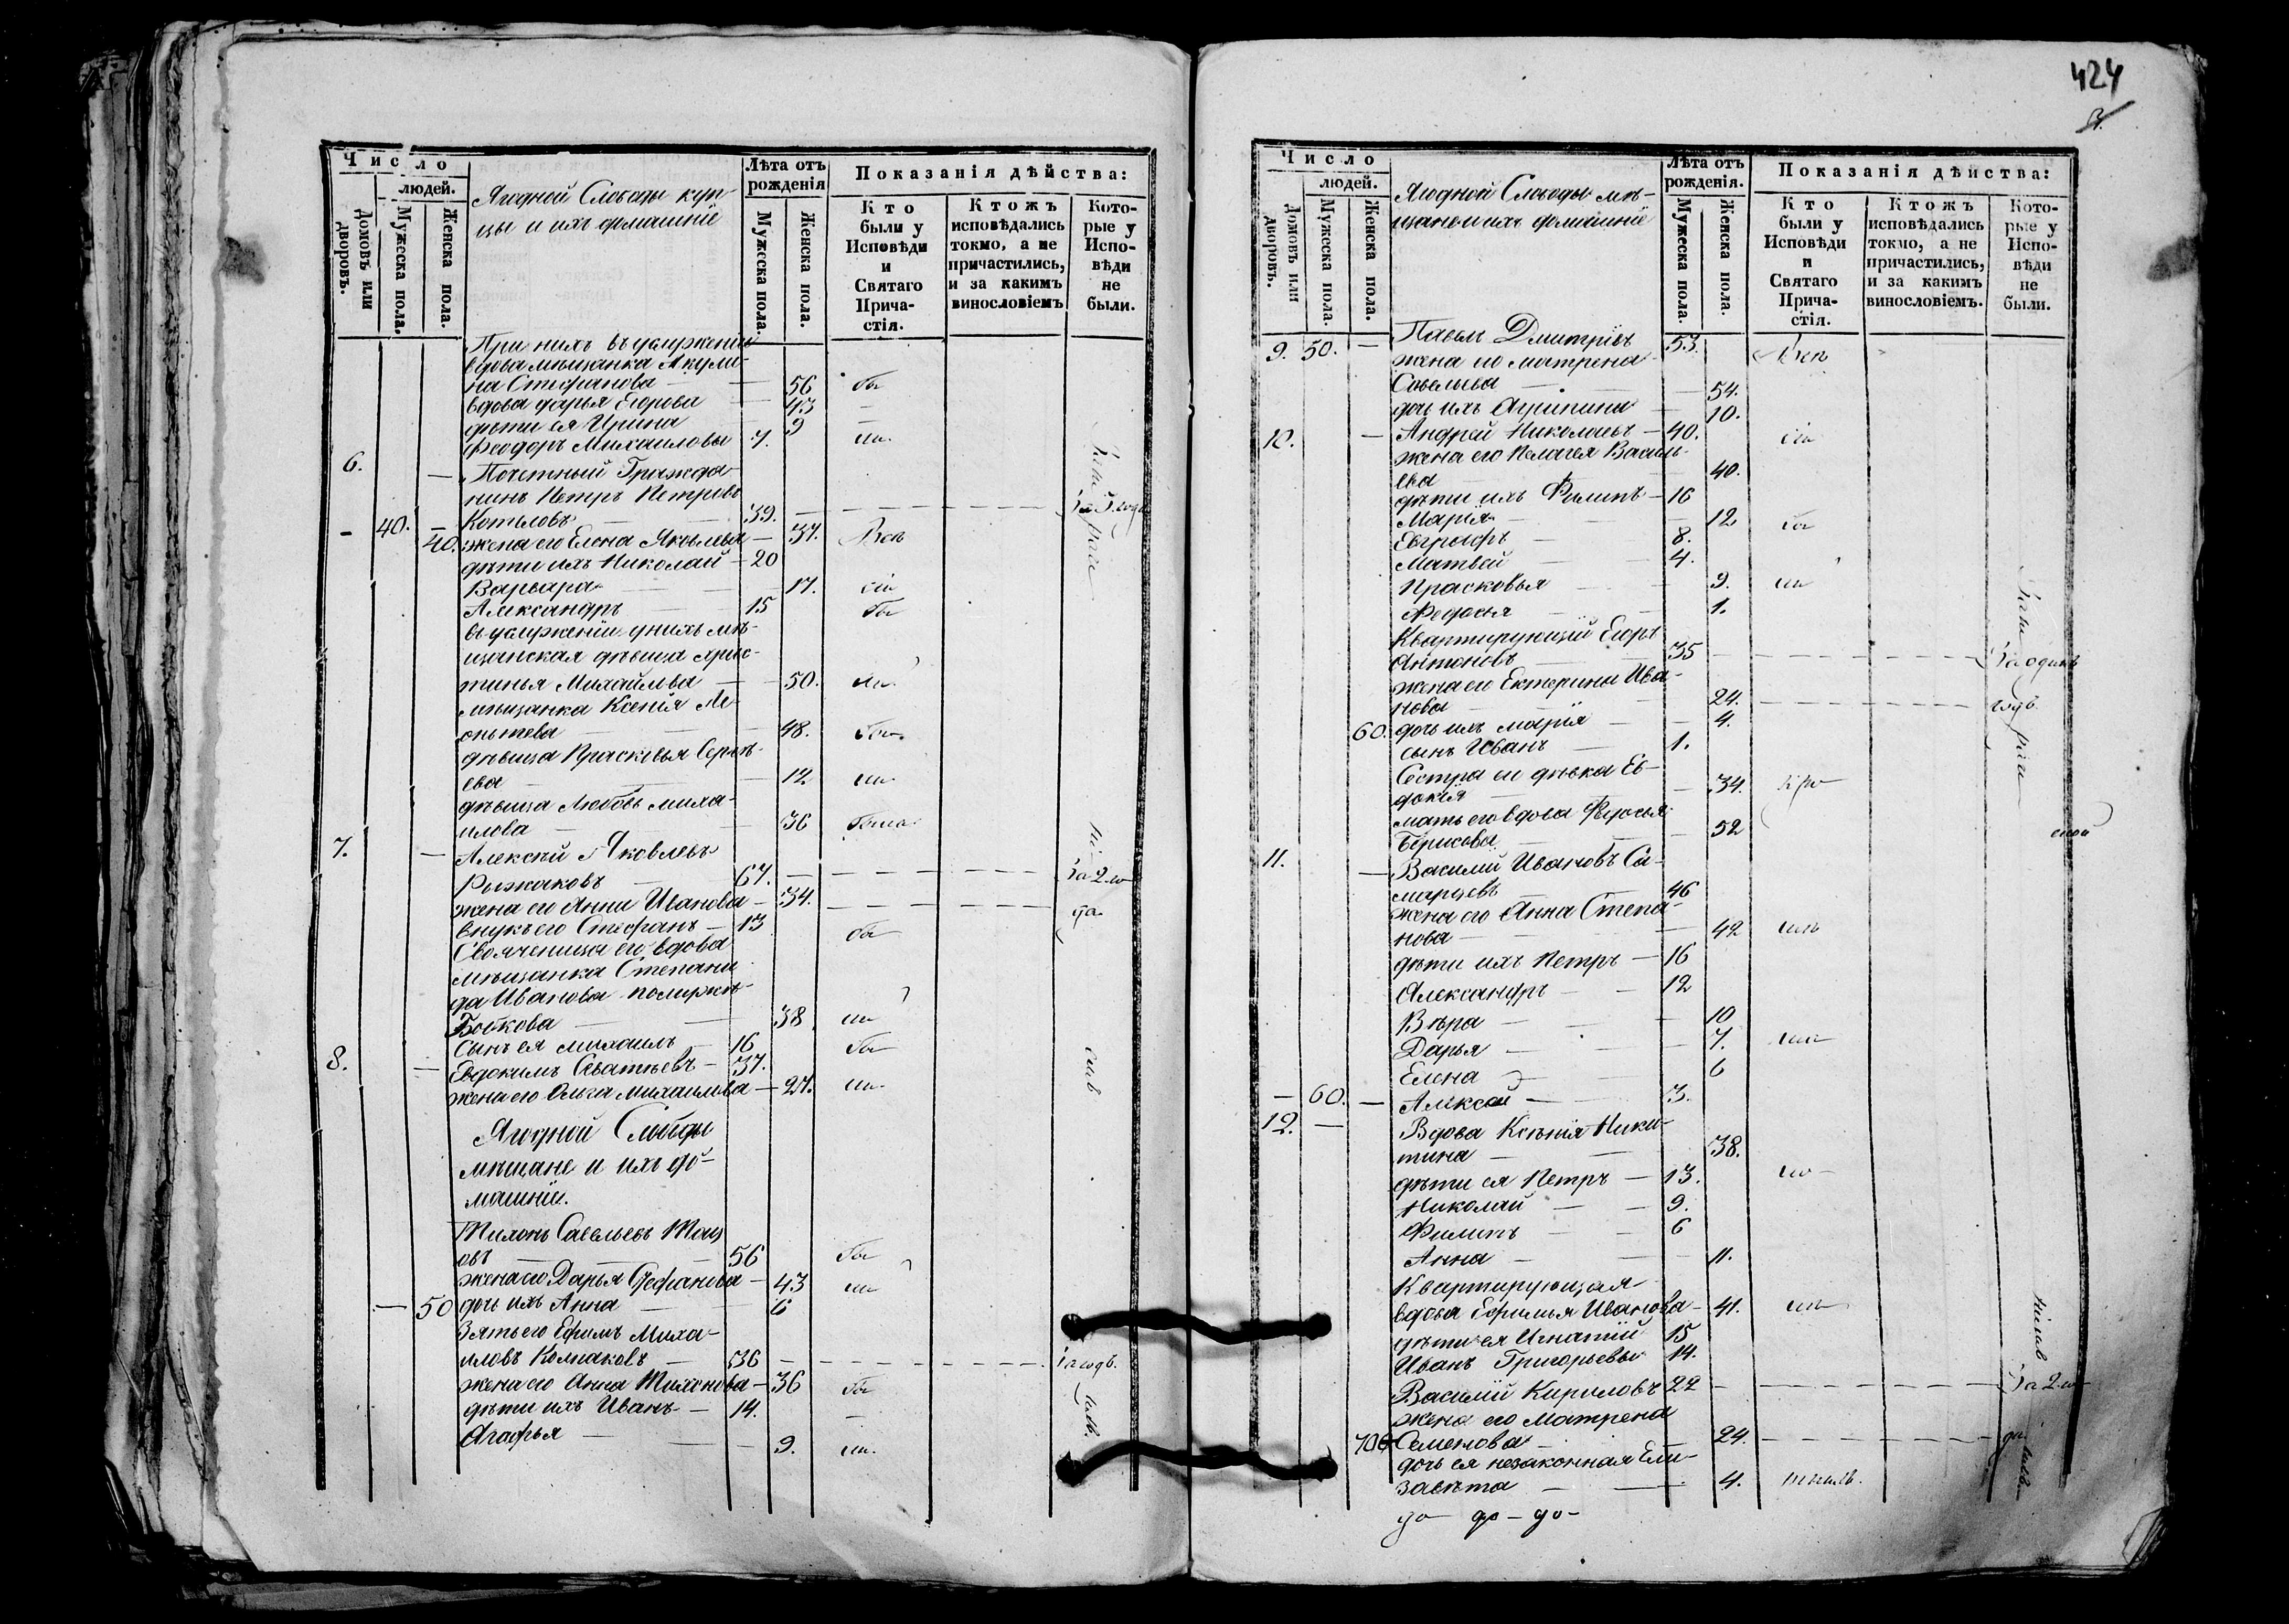 Число
людей.
Домовъ или дворовъ.
Мужеска пола.
Женска пола.
Ягодной Слободы куп-
цы и ихъ домашніе
Лѣта отъ рожденія
Мужеска пола.
Женска пола.
Показанія дѣйства:
Кто были у Исповѣди и Святаго Прича-стія.
Ктожъ исповѣдались токмо, а не причастились, и за какимъ винословіемъ
Кото-рые у Испо-вѣди не были.
При нихъ въ услуженіи
вдова мѣщанка Акули-
на Стефанова — 56 бы
вдова Дарья Егорова — 43 —
дѣти ея Ирина — 9
Феодоръ Михаиловы 7. ли.
6. — Почетный Гражда-
нинъ Петръ Петровъ
Котеловъ — 39. — за 3. года
— 40. — 40. жена его Елена Яковлева — 37. Всѣ
дѣти ихъ Николай — 20
Варвара — 17. сіи
Александръ — 15 бы
въ услуженіи у нихъ мѣ-
щанская дѣвица Хрис-
тинья Михайлова — 50. ли.
мѣщанка Ксенія Ле-
онтьева — 48. бы
дѣвица Прасковья Сергѣ-
ева — 12 ли.
дѣвица Любовь Миха-
илова — 36 была
7. — Алексѣй Яковлевъ
Рыжаковъ — 67. — за 2 го-
жена его Анна Иванова — 34. — да.
внукъ его Стефанъ — 13 бы
Свояченица его вдова
мѣщанка Степани-
да Иванова
Бойкова — 38 ли
сынъ ея Михаилъ — 16 бы
8. — Евдокимъ Саватѣевъ — 37.
жена его Ольга Михаилова — 27. ли.
Ягодной Слободы
мѣщане и ихъ до-
машніи.
Тихонъ Савельевъ
овъ — 56 бы
жена его Дарья Стефанова — 43 ли
— 50 дочь ихъ Анна — 6
Зять его Ефимъ Миха-
иловъ Колпаковъ — 36 — за годъ.
жена его Анна Тихонова — 36 бы
дѣти ихъ Иванъ — 14. —
Агафья — 9. ли.
424
Число
людей.
Домовъ или дворовъ.
Мужеска пола.
Женска пола.
Ягодной Слободы мѣ-
щане и ихъ домашніе
Лѣта отъ рожденія.
Мужеска пола.
Женска пола.
Показанія дѣйства:
Кто были у Исповѣди и Святаго Прича-стія.
Ктожъ исповѣдались токмо, а не причастились, и за какимъ винословіемъ.
Кото-рые у Испо-вѣди не были.
9. 50. — Павелъ Дмитріевъ 53. Всѣ
жена его Матрена
Савельева — 54.
дочь ихъ Агрипина — 10.
10. — Андрей Николаевъ — 40. сіи
жена его Пелагея Василь-
ева — 40.
дѣти ихъ Филипъ — 16
Марія — 12 бы
Евграфъ — 8.
Матвей — 4.
Прасковья — 9. ли
Федосья — 1.
Квартирующій Егоръ
Антоновъ — 35 — за одинъ
жена его Екатерина Ива-
нова — 24. — годъ.
60. дочь ихъ Марія — 4.
сынъ Иванъ — 1.
Сестра его дѣвка Ев-
докія — 34.
мать его вдова Федосья
Борисова — 52
11. — Василій Ивановъ Са-
марцевъ — 46
жена его Анна Степа-
нова — 42
дѣти ихъ Петръ — 16
Александръ — 12
Вѣра — 10
Дарья — 7.
Елена — 6
— 60. — Алексѣй — 3.
12. — Вдова Ксенія Ники-
тина — 38.
дѣти ея Петръ — 13.
Николай — 9.
Филипъ — 6
Анна — 11.
Квартирующая
вдова Ефимья Иванова — 41.
дѣти ея Игнатій 15
Иванъ Григорьевы 14.
Василій Кириловъ 22 — за 2 го-
жена его Матрена
70 Семенова — 24. — да.
дочь ея незаконная Ели-
завета — 4.